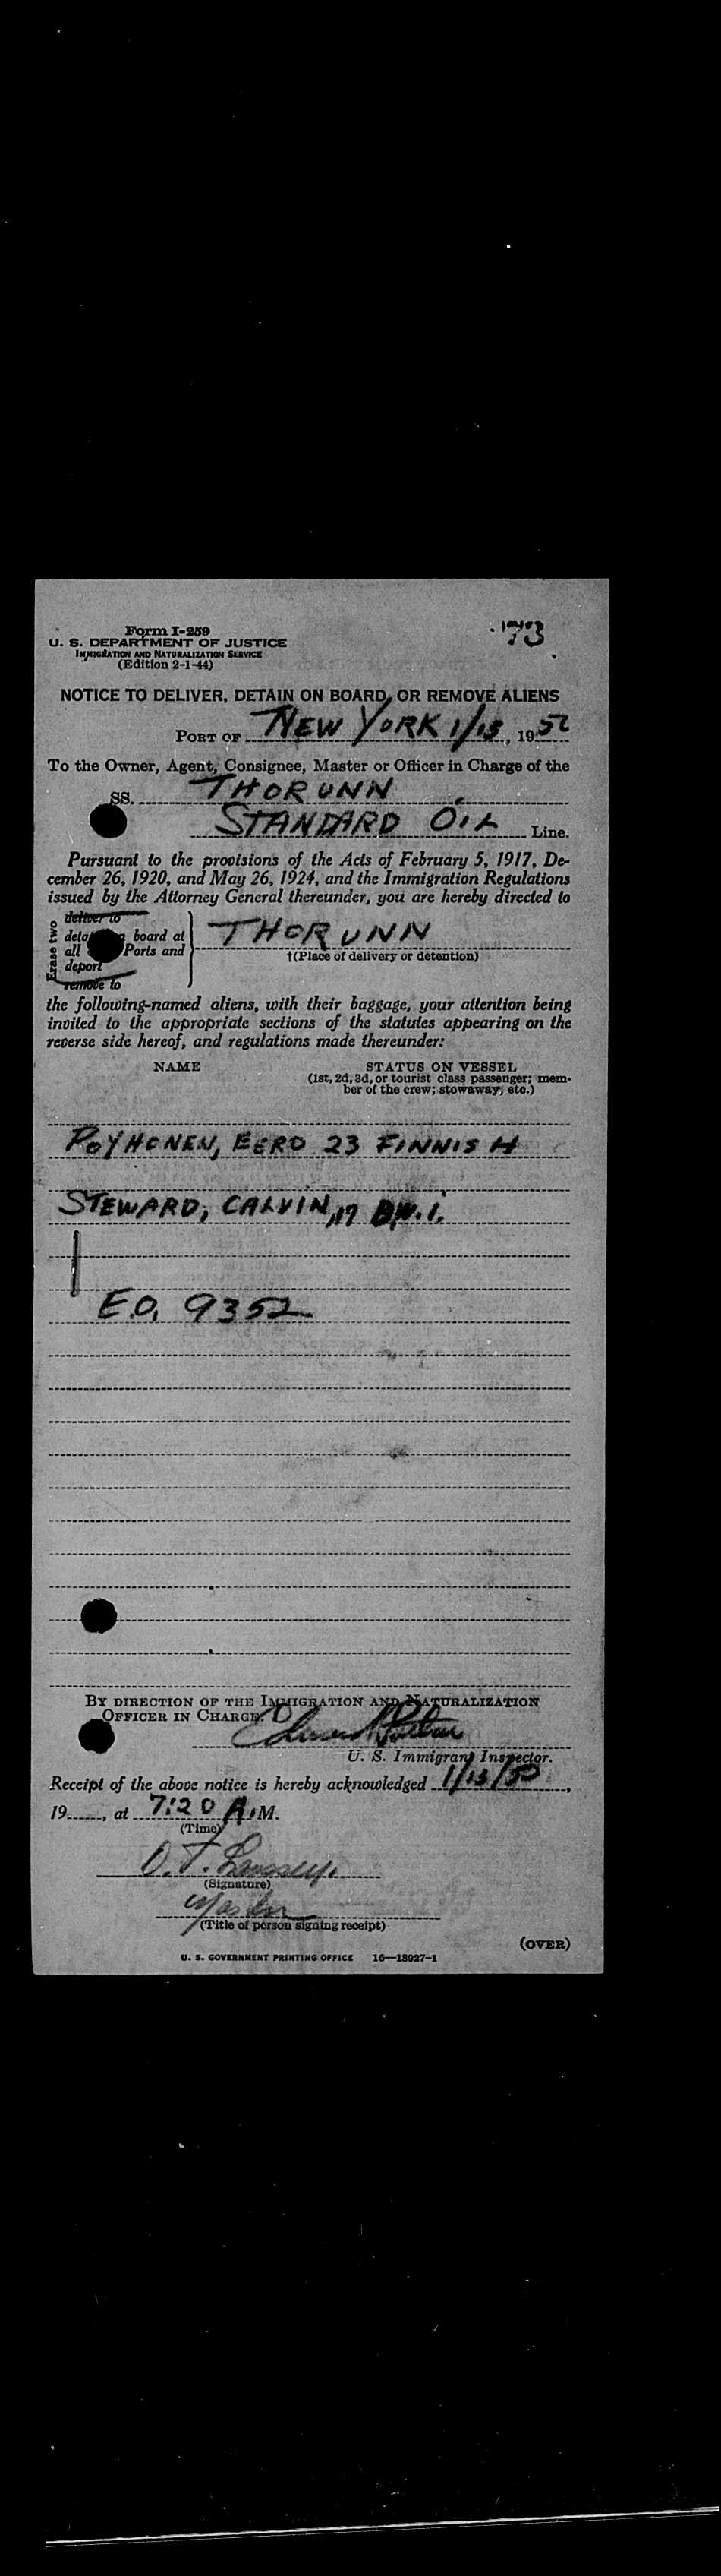 Form I-259
'73
U. S. DEPARTMENT OF JUSTICE
IMMIGRATION AND NATURALIZATION SERVICE
(Edition 2-1-44)
NOTICE TO DELIVER, DETAIN ON BOARD, OR REMOVE ALIENS
PORT OF NEW YORK 1/13, 1950
To the Owner, Agent, Consignee, Master or Officer in Charge of the
SS. THORUNN
STANDARD OIL Line.
Pursuant to the provisions of the Acts of February 5, 1917, De-
cember 26, 1920, and May 26, 1924, and the Immigration Regulations
issued by the Attorney General thereunder, you are hereby directed to
Erase two
deliver to
board at
all Ports and
deport
remove to
THORUNN
†(Place of delivery or detention)
the following-named aliens, with their baggage, your attention being
invited to the appropriate sections of the statutes appearing on the
reverse side hereof, and regulations made thereunder:
NAME STATUS ON VESSEL
(1st, 2d, 3d, or tourist class passenger; mem-
ber of the crew; stowaway, etc.)
POYHONEN, EERO 23 FINNISH
STEWARD, CALVIN, 17 B.W.I.
E.O. 9352
BY DIRECTION OF THE IMMIGRATION AND NATURALIZATION
OFFICER IN CHARGE:
U. S. Immigrant Inspector.
Receipt of the above notice is hereby acknowledged 1/13/50,
19......, at 7:20 A.M.
(Time)
(Signature)
Master
(Title of person signing receipt)
(OVER)
U. S. GOVERNMENT PRINTING OFFICE 16—18927-1